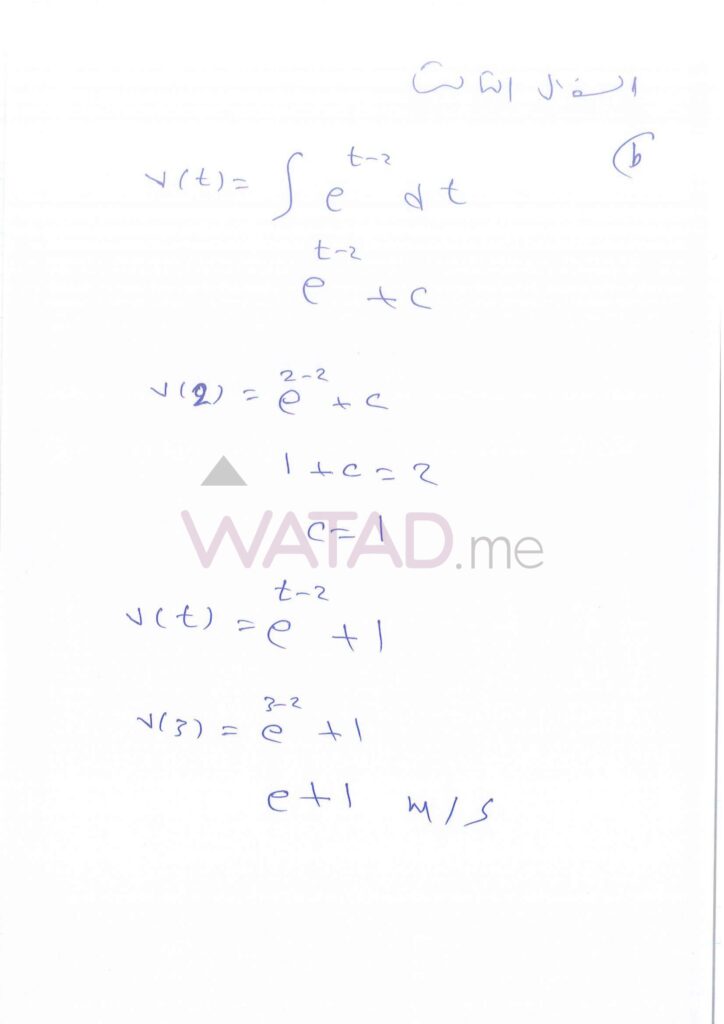 السؤال الثالث
b
v(t) = ∫ e^{t-2} dt
e^{t-2} + c
v(2) = e^{2-2} + c
1 + c = 2
c = 1
WATAD.me
v(t) = e^{t-2} + 1
v(3) = e^{3-2} + 1
e + 1 m/s